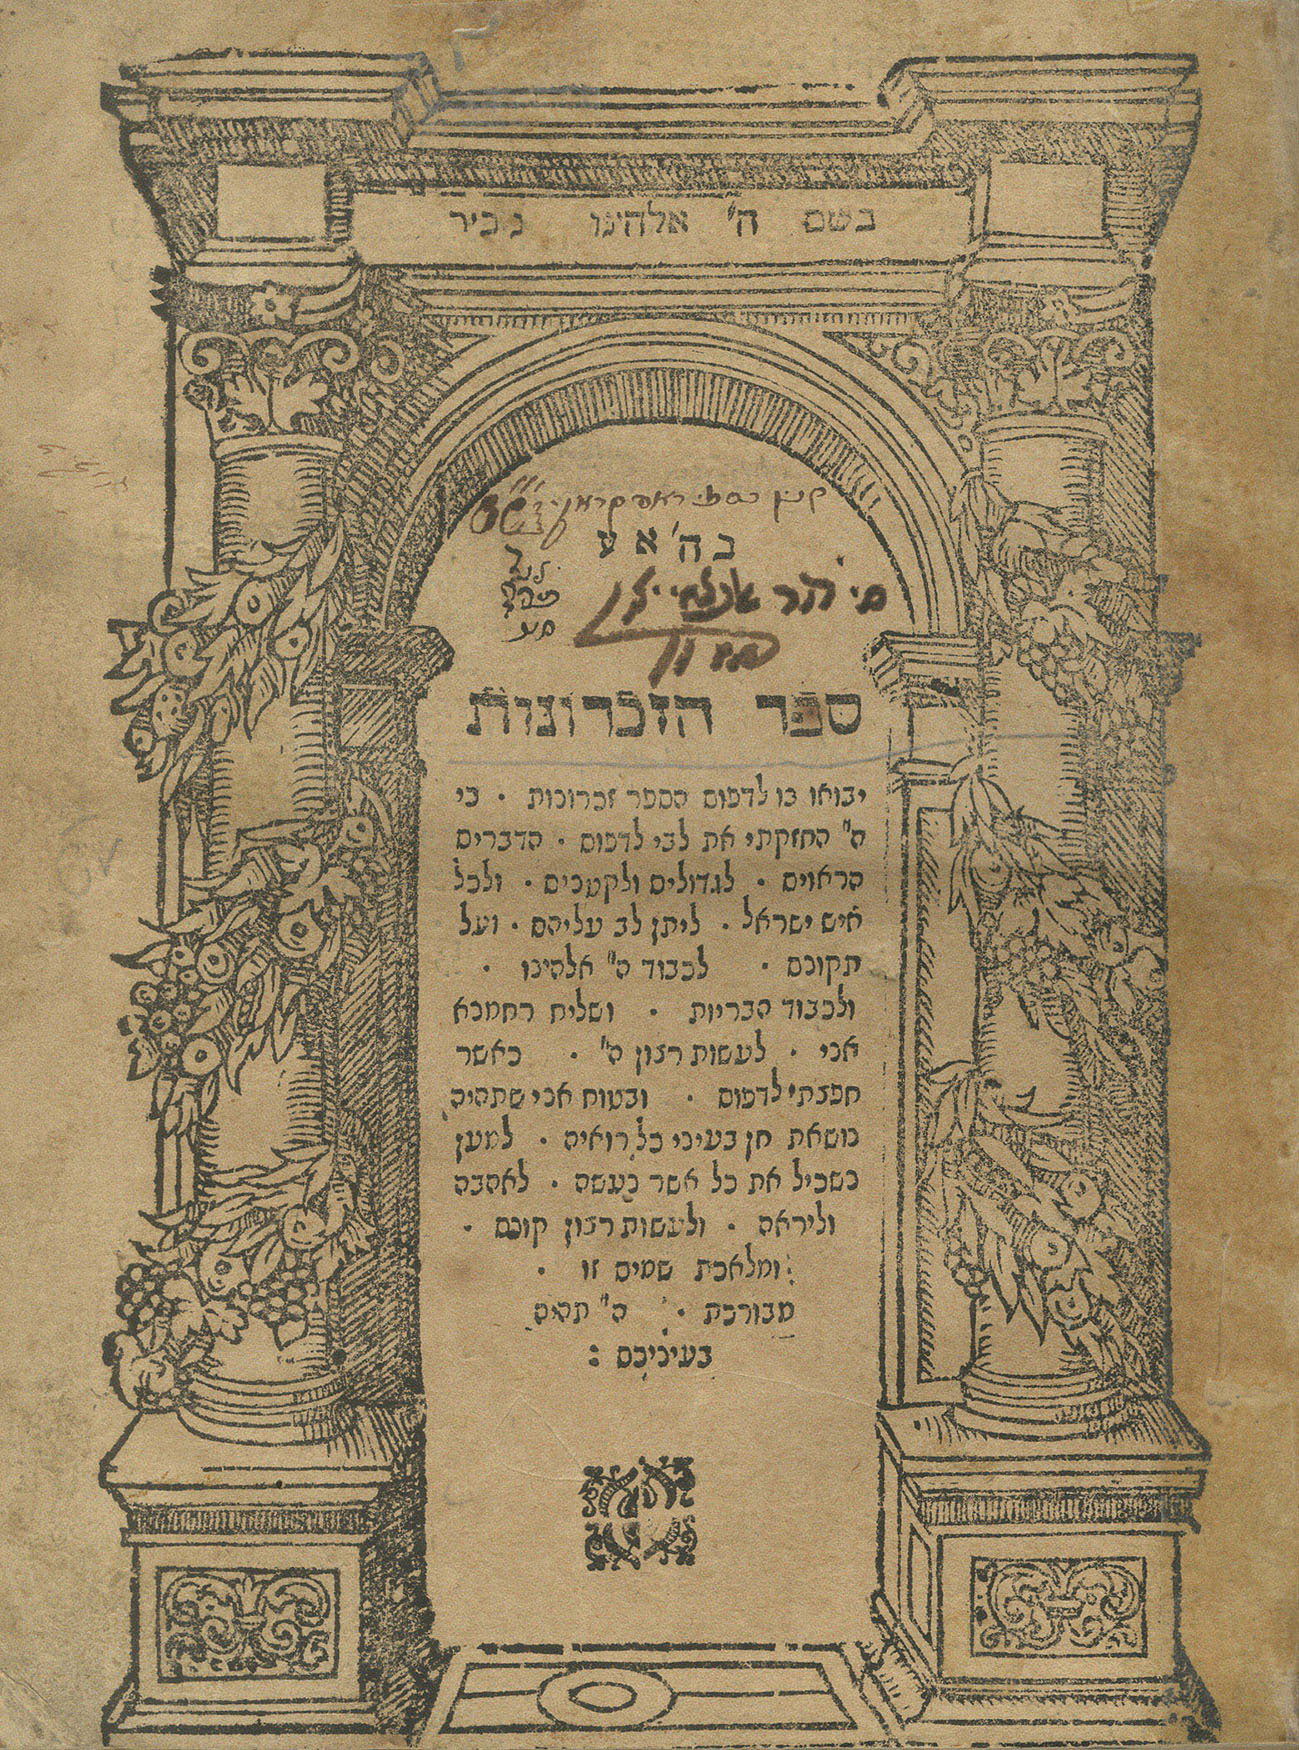 בשם ה' אלהינו נזכיר
בה' א ע
ספר הזכרונות
יבואו בו לדפוס הספר זכרונות · כי
ה" החזקתי את לבי לדפוס · הדברים
הראוים · לגדולים ולקטנים · ולכל
איש ישראל · ליתן לב עליהם · ועל
תקונם · לכבוד ה" אלהינו ·
ולכבוד הבריות · ושליח רחמנא
אני · לעשות רצון ה" · כאשר
חפצתי לדפוס · ובטוח אני שתהיה
נושאת חן בעיני כל רואיה · למען
נשכיל את כל אשר נעשה · לאהבה
וליראה · ולעשות רצון קונם ·
ומלאכת שמים זו ·
מבורכת · ה" תהיה
בעיניכם :